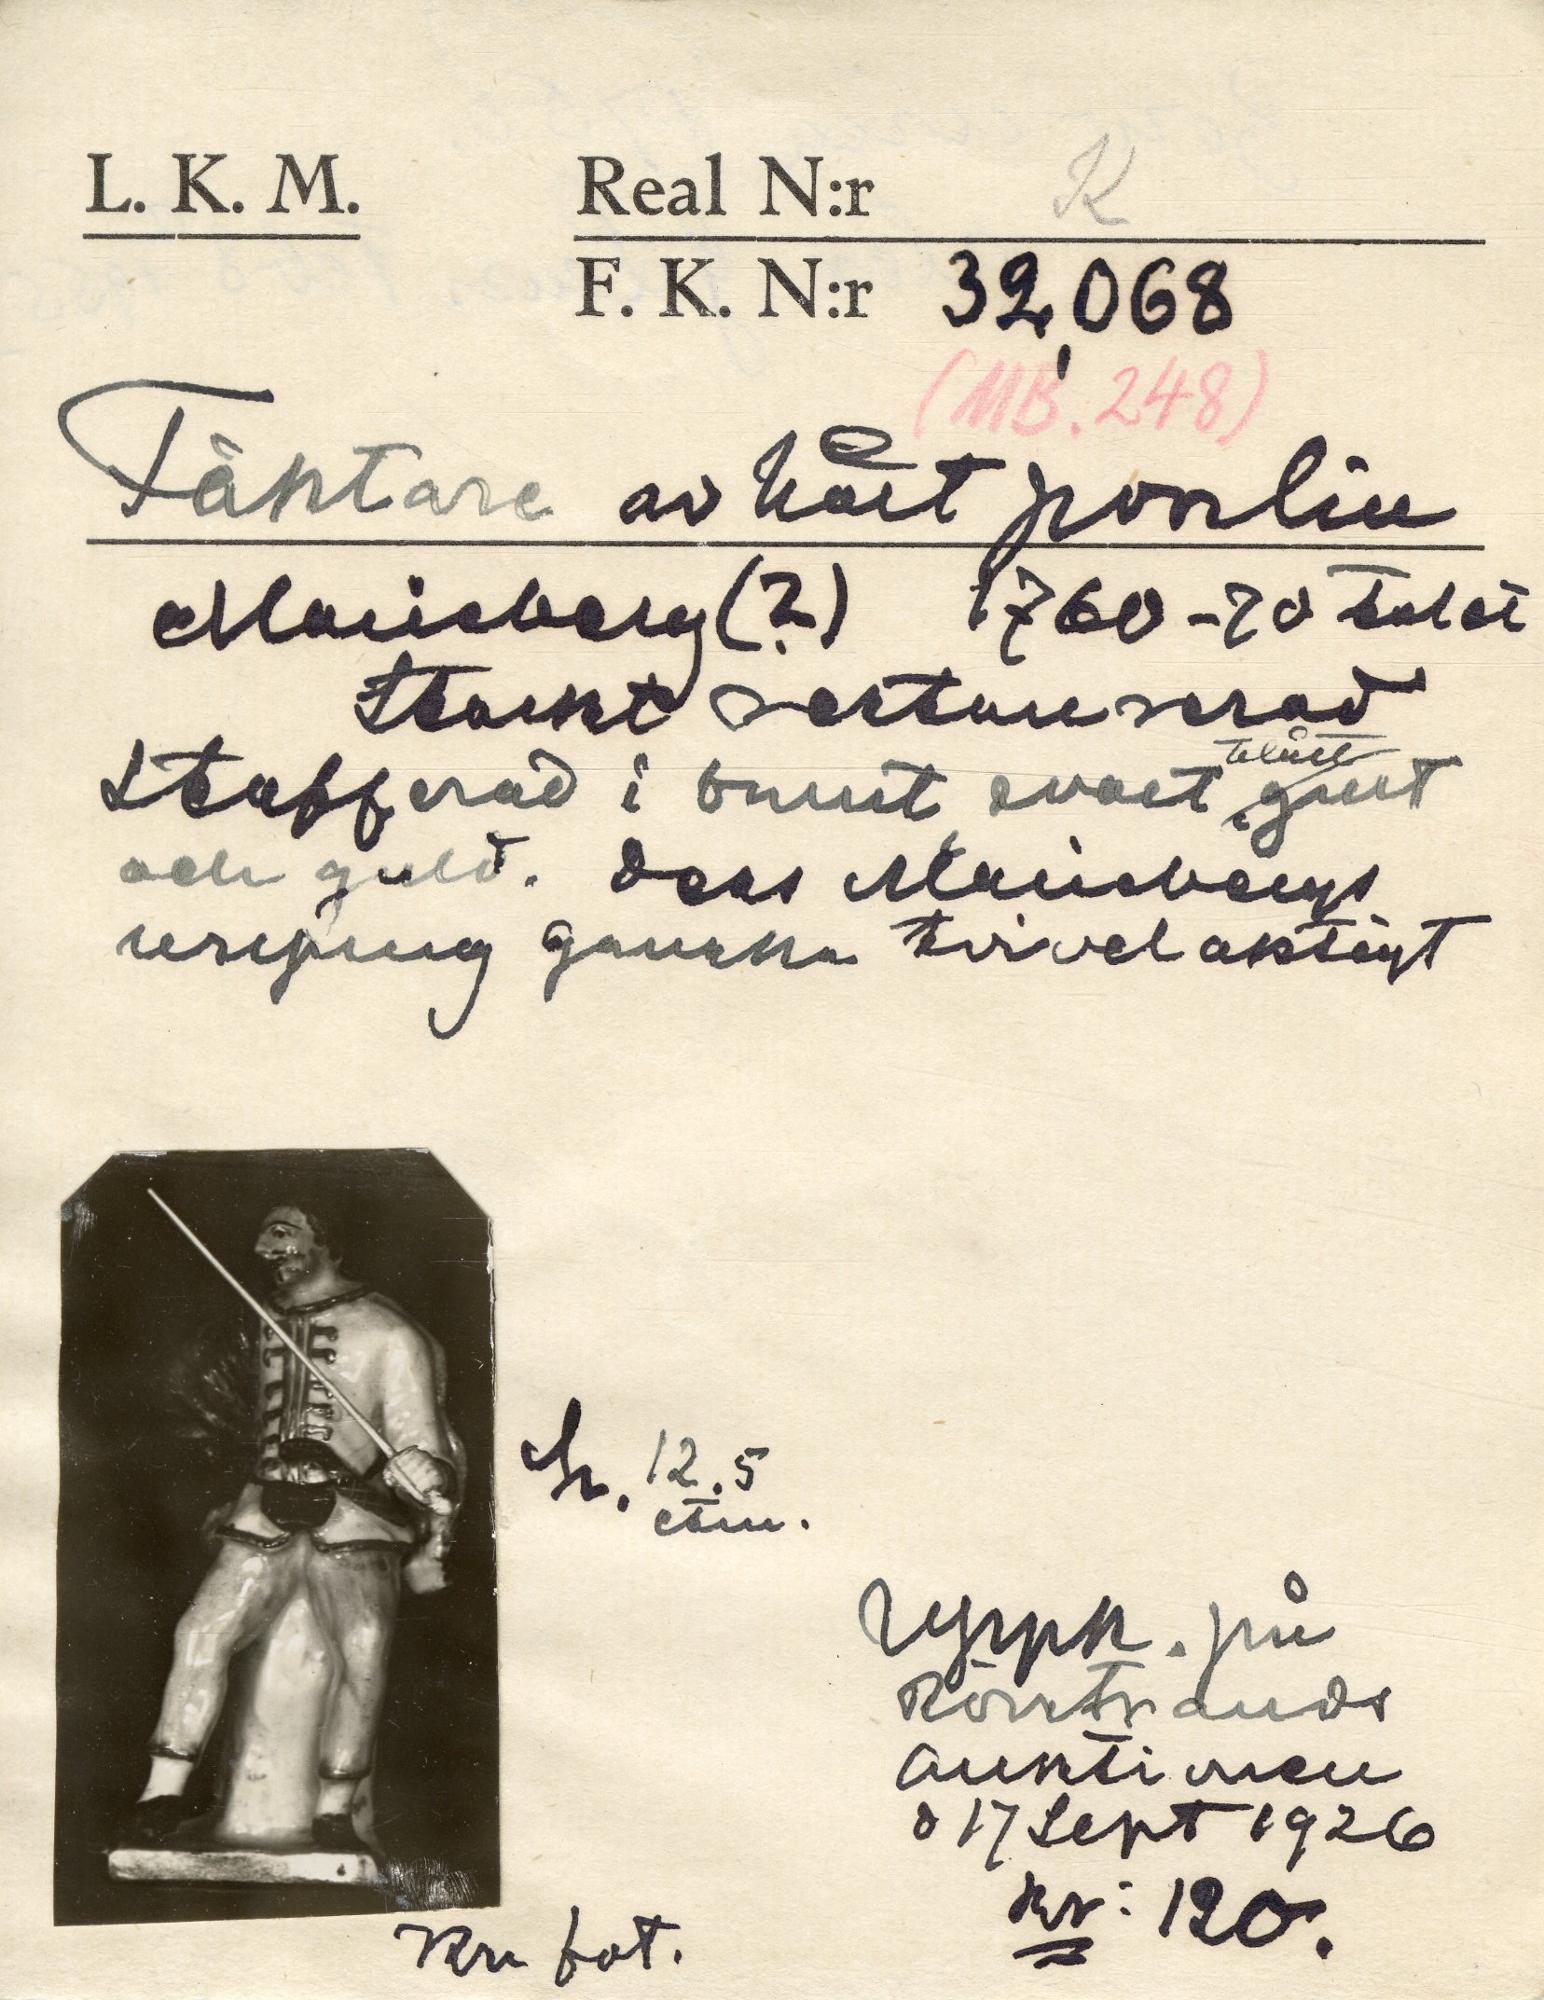 L. K. M.
Real N:r K
F. K. N:r 32,068
(MB. 248)
Fäktare av hårt porslin
Marieberg (?) 1760-70 talet
Starkt restaurerad
blått
Stafferad i brunt svart, gult
och guld. Dess Mariebergs
ursprung ganska tvivelaktigt
h. 12.5
ctm.
på
Rörstrands
auktionen
d 17 Sept 1926
kr: 120.
fot.